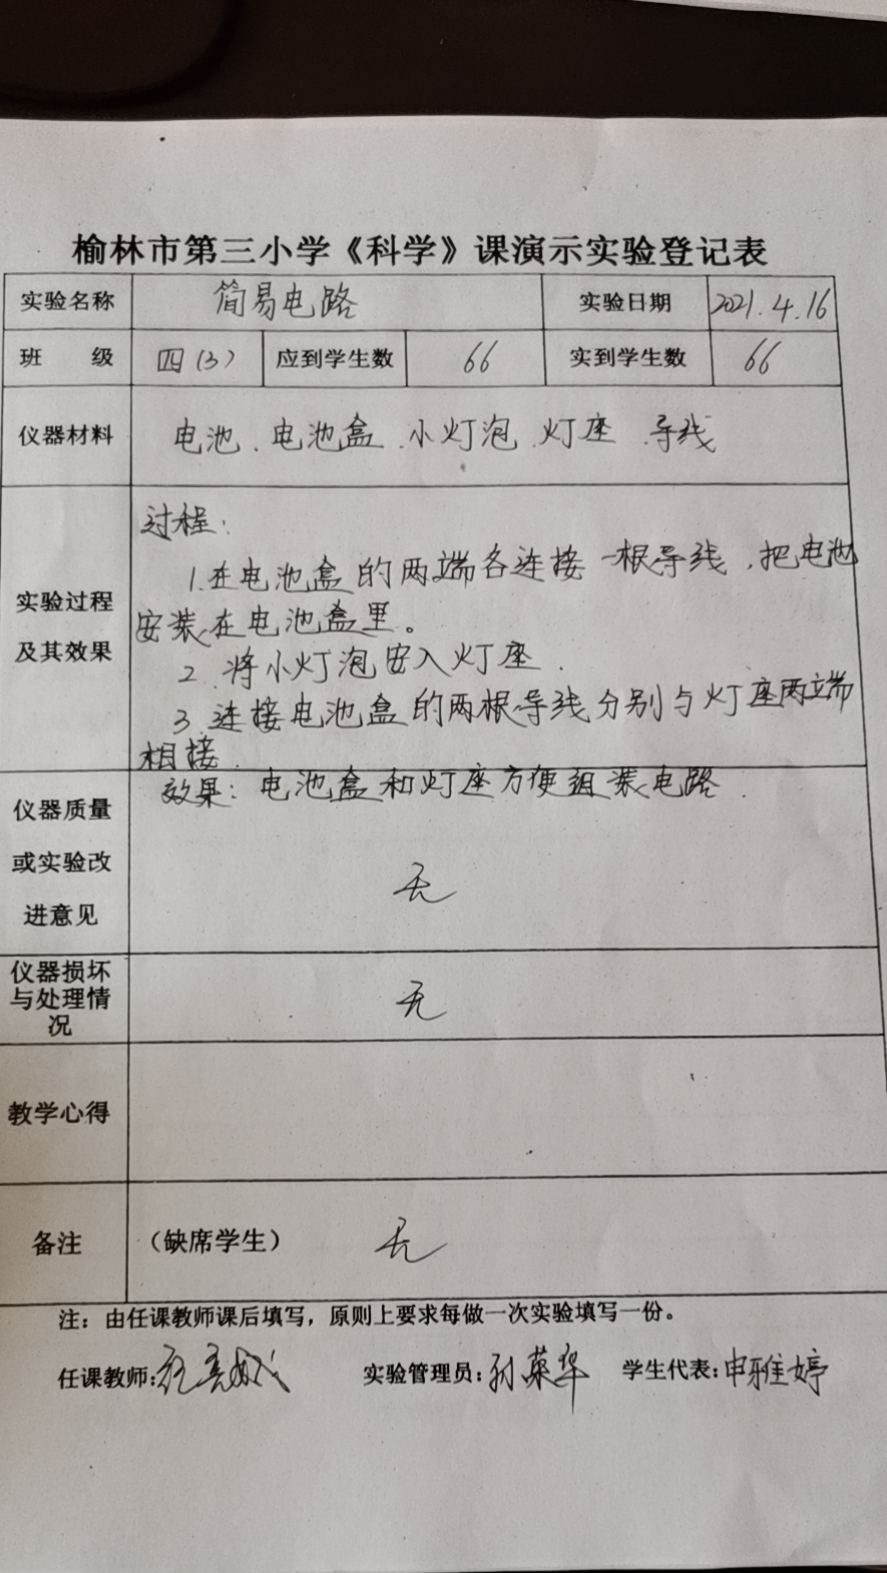 榆林市第三小学《科学》课演示实验登记表
实验名称 简易电路 实验日期 2021.4.16
班 级 四(3) 应到学生数 66 实到学生数 66
仪器材料 电池、电池盒、小灯泡、灯座、导线
过程:
1.在电池盒的两端各连接一根导线,把电池
安装在电池盒里。
实验过程
及其效果
2.将小灯泡安入灯座.
3.连接电池盒的两根导线分别与灯座两端
相接.
效果:电池盒和灯座方便组装电路.
仪器质量
或实验改
进意见
无
仪器损坏
与处理情
况
无
教学心得
备注 (缺席学生) 无
注:由任课教师课后填写,原则上要求每做一次实验填写一份。
任课教师: 实验管理员:孙荣华 学生代表:申雅婷